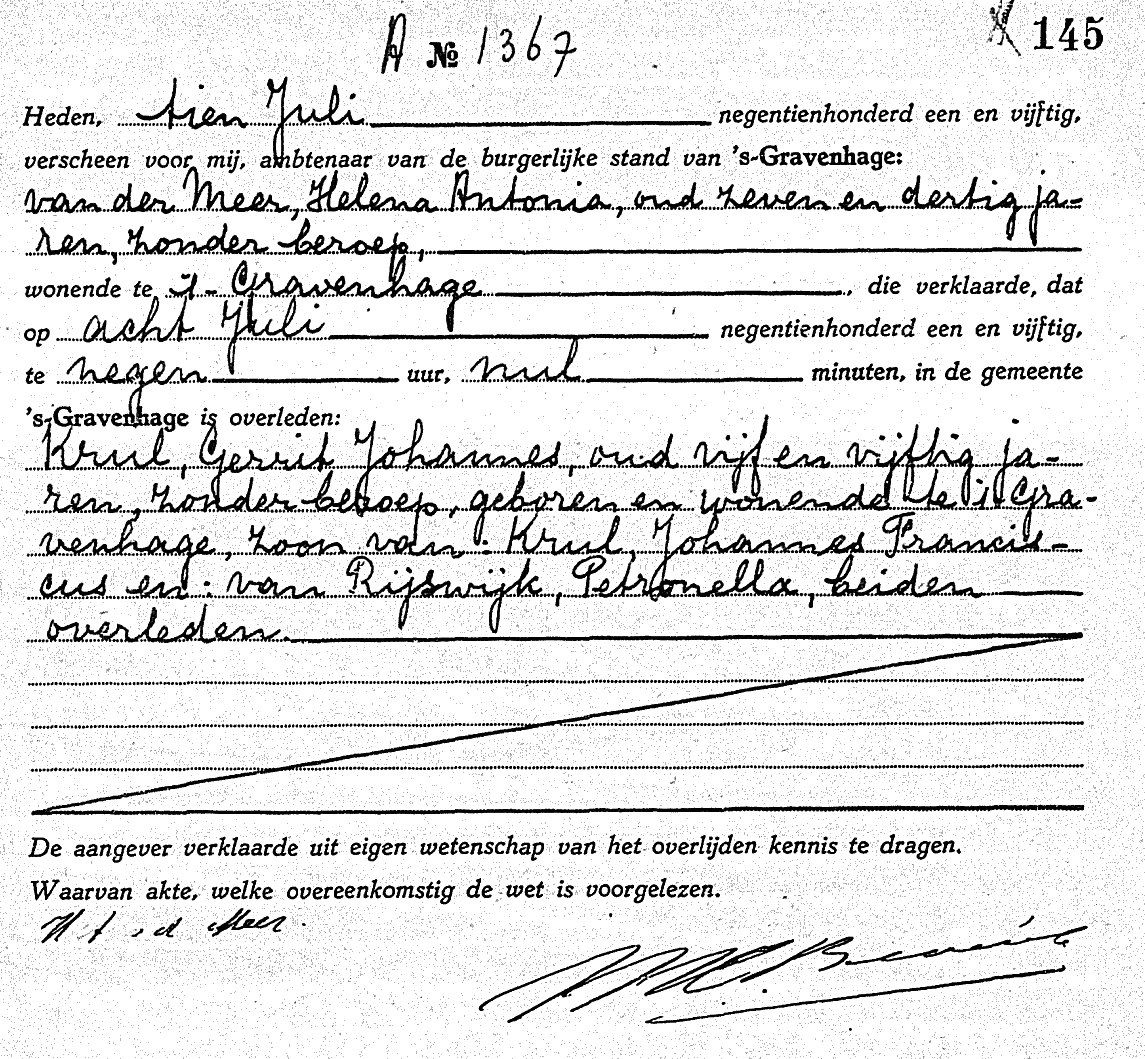 A № 1367
145
Heden, tien Juli negentienhonderd een en vijftig,
verscheen voor mij, ambtenaar van de burgerlijke stand van 's-Gravenhage:
van der Meer, Helena Antonia, oud zeven en dertig ja-
ren, zonder beroep,
wonende te 's-Gravenhage, die verklaarde, dat
op acht Juli negentienhonderd een en vijftig,
te negen uur, nul minuten, in de gemeente
's-Gravenhage is overleden:
Krul, Gerrit Johannes, oud vijf en vijftig ja-
ren, zonder beroep, geboren en wonende te 's-Gra-
venhage, zoon van: Krul, Johannes Francis-
cus en: van Rijswijk, Petronella, beiden
overleden.
De aangever verklaarde uit eigen wetenschap van het overlijden kennis te dragen.
Waarvan akte, welke overeenkomstig de wet is voorgelezen.
Meer.